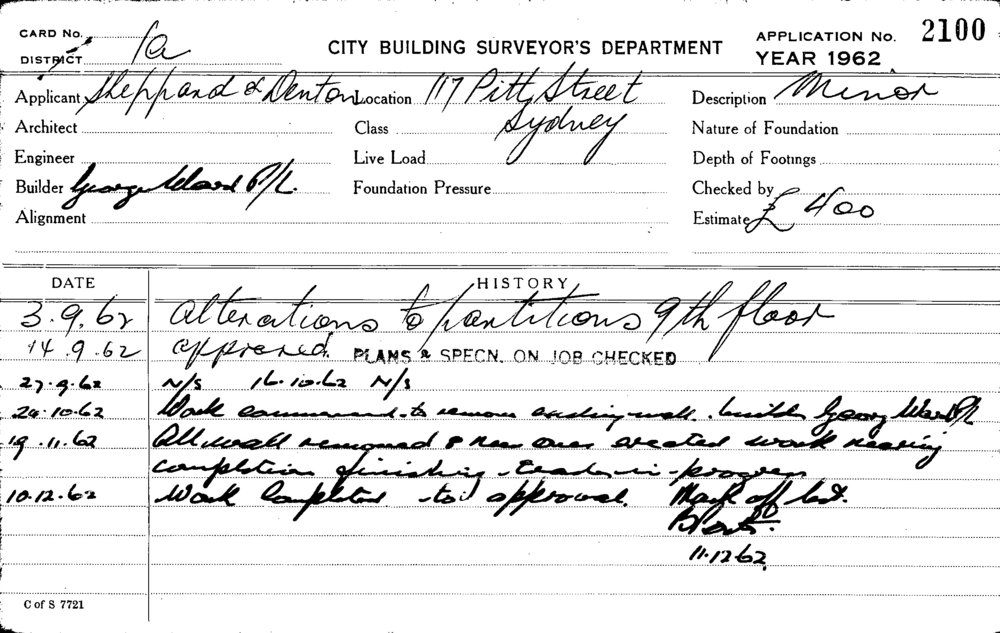 CARD No.
DISTRICT 1a
CITY BUILDING SURVEYOR'S DEPARTMENT
APPLICATION No. 2100
YEAR 1962
Applicant Sheppard & Denton Location 117 Pitt Street Description Minor
Architect Class Sydney Nature of Foundation
Engineer Live Load Depth of Footings
Builder George Ward P/L. Foundation Pressure Checked by
Alignment Estimate £400
DATE HISTORY
3.9.62 Alterations to partitions 9th floor
14.9.62 approved. PLANS & SPECN. ON JOB CHECKED
27.9.62 N/S 16.10.62 N/S
24.10.62 Work commenced to remove existing wall. builder George Ward P/L
19.11.62 All wall removed & new ones erected work nearing
completion finishing trades in progress
10.12.62 Work Completed to approval. Mark off
11.12.62
C of S 7721